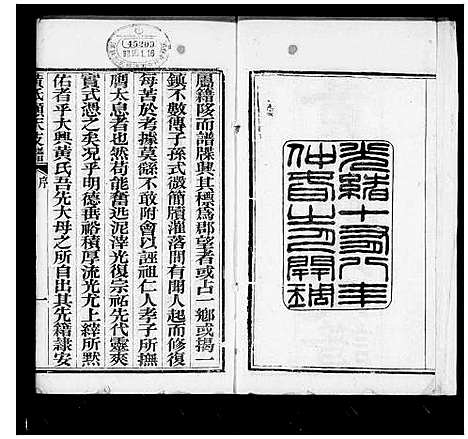 光緒十有八年
仲春之月開
周籍陵而譜牒興其標爲郡望者或占一鄉或搨一
鎭不數傳子孫式微簡牘灌落間有聞人起而修復
每苦於考據莫繇不敢附會以誣祖仁人孝子所撫
膺太息者也然苟能奮迅泥滓光復宗祐先代靈爽
實式憑之矣况乎明德垂裕積厚流光尤上縡所黙
佑者乎大興黃氏吾先大母之所自出其先籍隸安
序
一